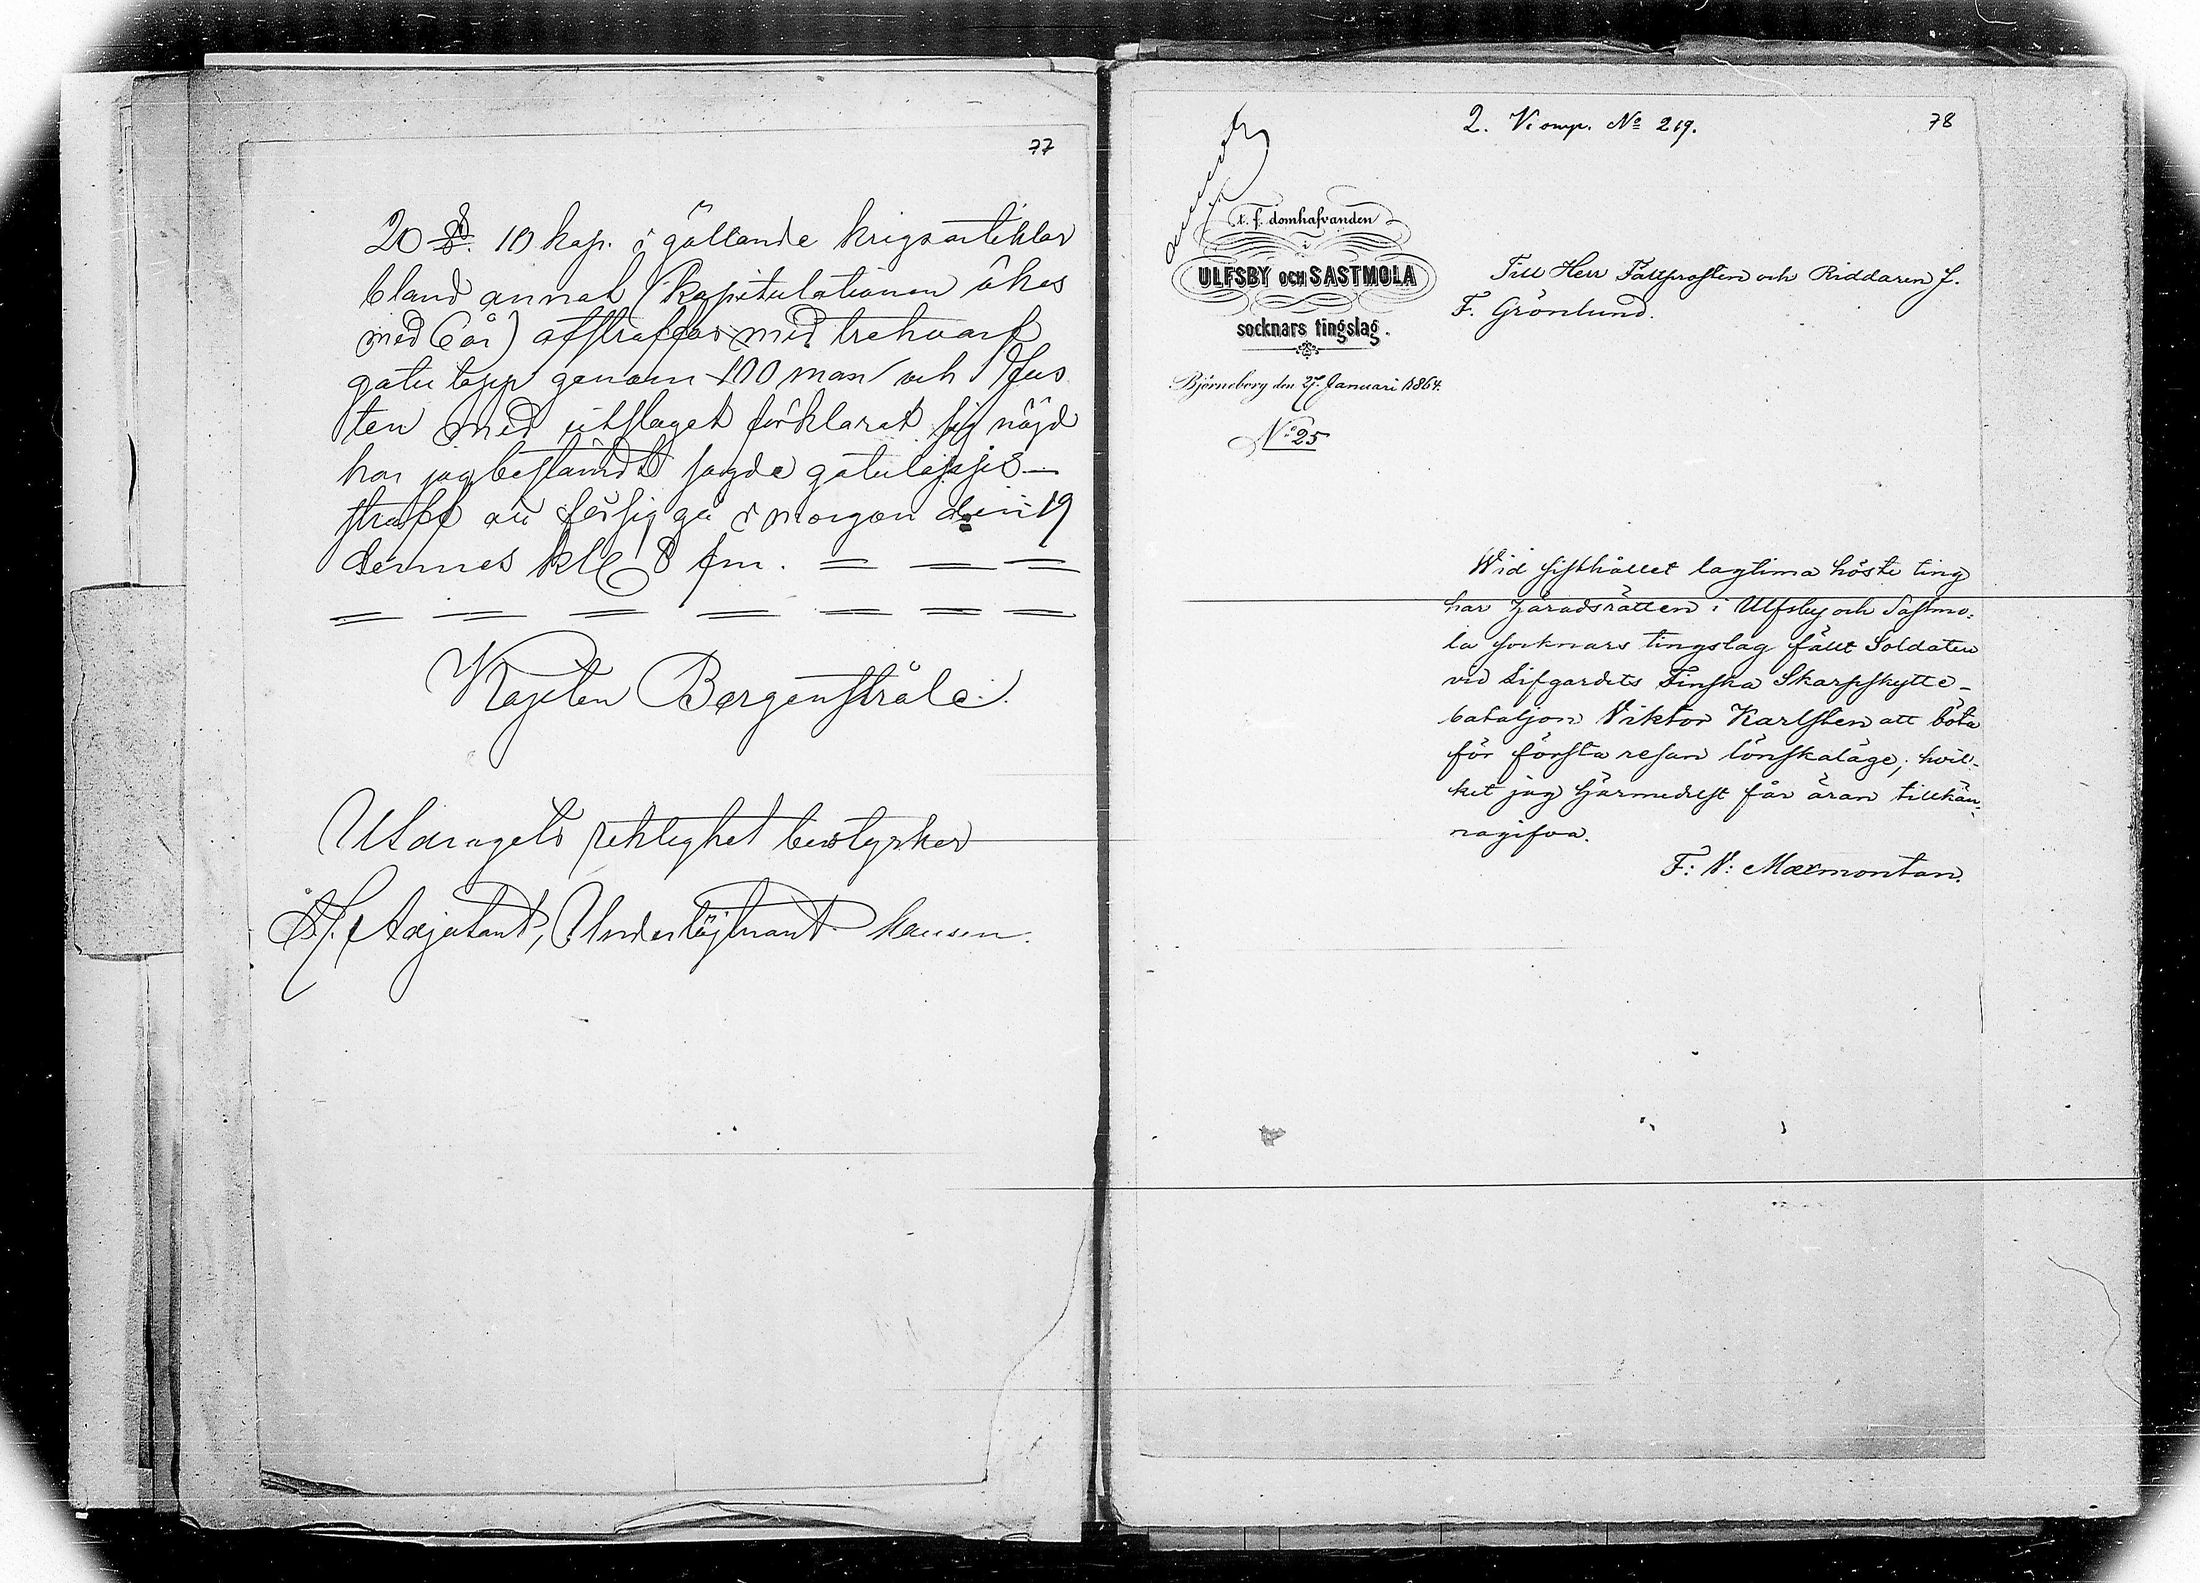 77
20 §. 10 kap. i gällande krigsartiklar
bland annat (kapitulationen ökes
med 6 år) afstraffas med trehvarf
gatulopp genom 100 man och Jus
ten med utslaget förklarat sig nöjd
har jag bestämdt sagde gatulopps-
straff att försiggå i morgon den 19
dennes kl 8 fm.
Kapten Bergenstråle.
Utdragets riktighet bestyrker
Adjutant, Underlöjtnant
2. Komp. No 219.
78
t. f. domhafvanden
i
ULFSBY OCH SASTMOLA
socknars tingslag.
Björneborg den 27 Januari 1864.
No 25
Till Herr Fältprosten och Riddaren J.
F. Grönlund.
Wid sisthållet lagtima höste ting
har Häradsrätten i Ulfsby och Sastmo-
la socknars tingslag fällt Soldaten
vid Lifgardets Finska Skarpskytte-
bataljon Viktor Karlsten att böta
för första resan lönskaläge; hvil-
ket jag härmedelst får äran tillkän-
nagifva.